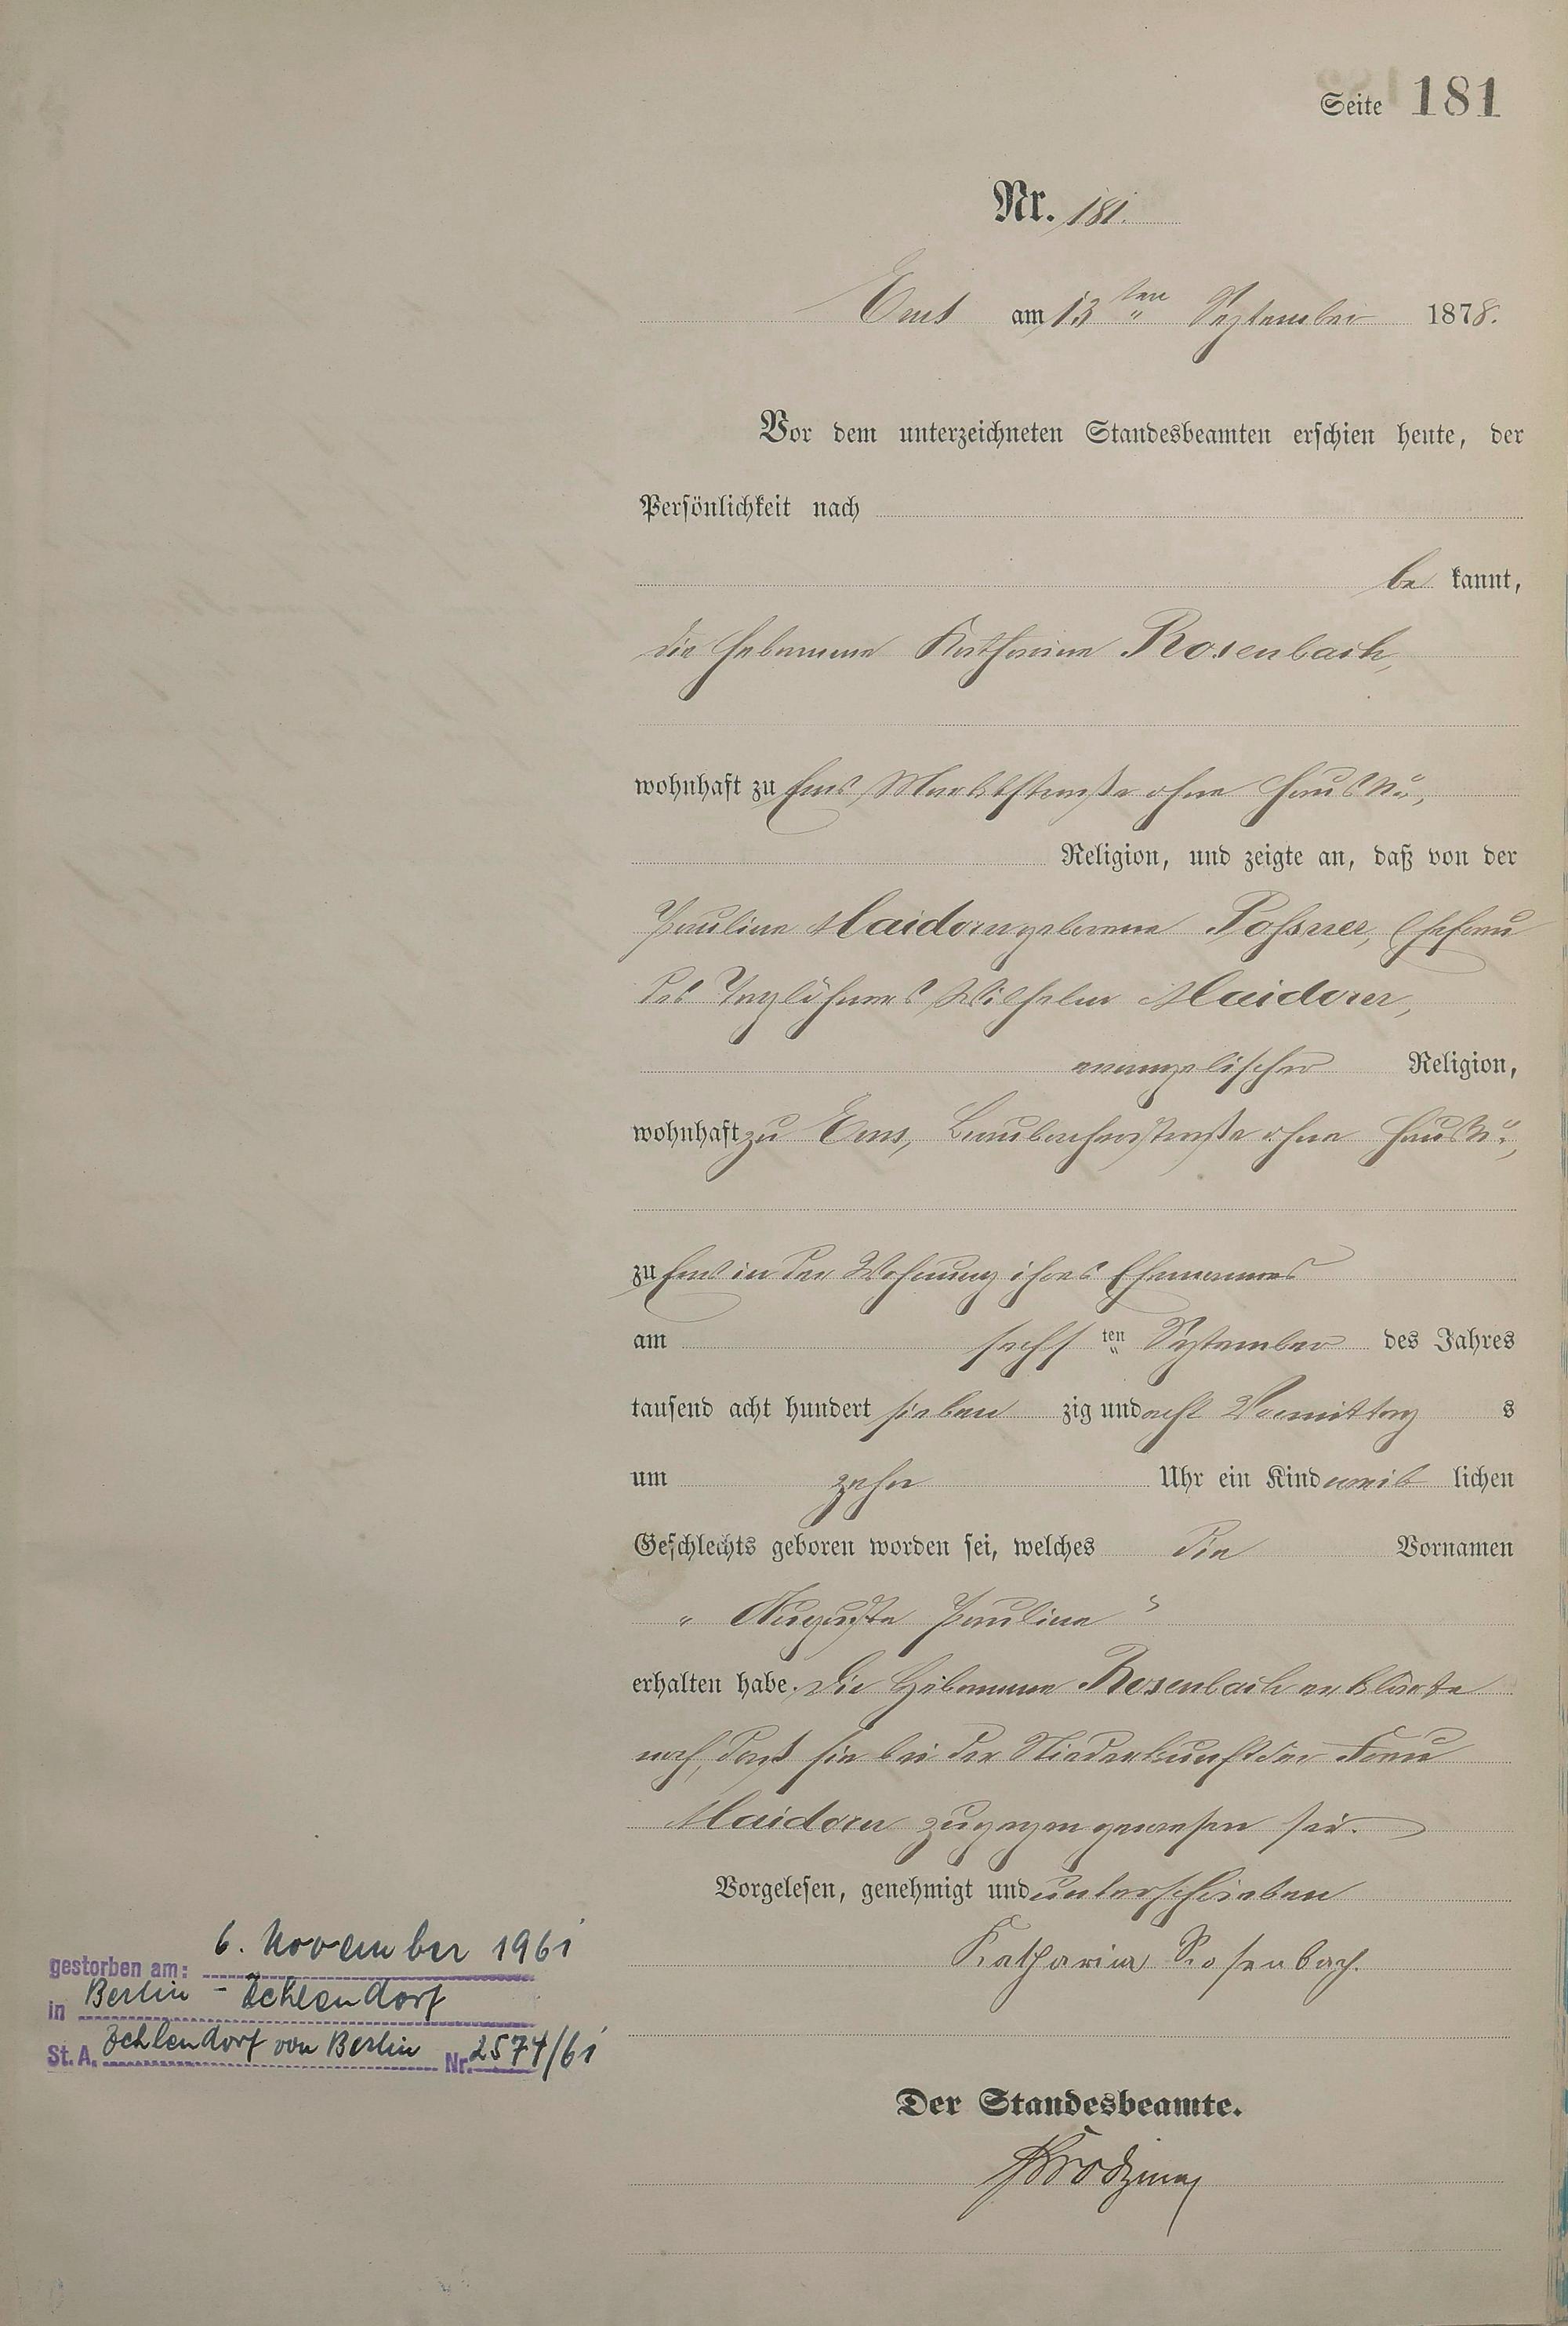 Seite 181
Nr. 181.
Ems am 13ten September 1878.
Vor dem unterzeichneten Standesbeamten erschien heute, der
Persönlichkeit nach
be kannt,
die Hebamme Katharina Rosenbach,
wohnhaft zu Ems, Marktstraße ohne Haus No,
Religion, und zeigte an, daß von der
Pauline Maidorn geborene Poßner, Ehefrau
des Taglöhners Wilhelm Maidorn,
evangelischer Religion,
wohnhaft zu Ems, Braubacherstraße ohne Haus No,
zu Ems in der Wohnung ihres Ehemannes
am sechsten September des Jahres
tausend acht hundert sieben zig und acht Vormittag s
um zehn Uhr ein Kind weib lichen
Geschlechts geboren worden sei, welches die Vornamen
"Auguste Pauline"
erhalten habe. Die Hebamme Rosenbach erklärte
noch, daß sie bei der Niederkunft der Frau
Maidorn zugegen gewesen sei.
Vorgelesen, genehmigt und unterschrieben
Katharina Rosenbach.
Der Standesbeamte.
gestorben am: 6. November 1961
in Berlin - Zehlendorf
St. A. Zehlendorf von Berlin Nr. 2574/61